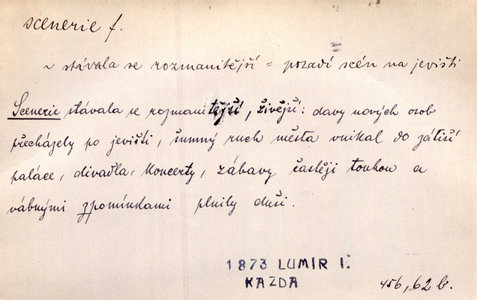 scenerie f.
~ stávala se rozmanitější = pozadí scén na jevišti
Scenerie stávala se rozmanitější, živější: davy nových osob
přecházely po jevišti, šumný ruch města vnikal do zátiší
paláce, divadla, koncerty, zábavy častěji touhou a
vábnými zpomínkami plnily duši.
1873 LUMÍR I.
KAZDA
456, 62 b.